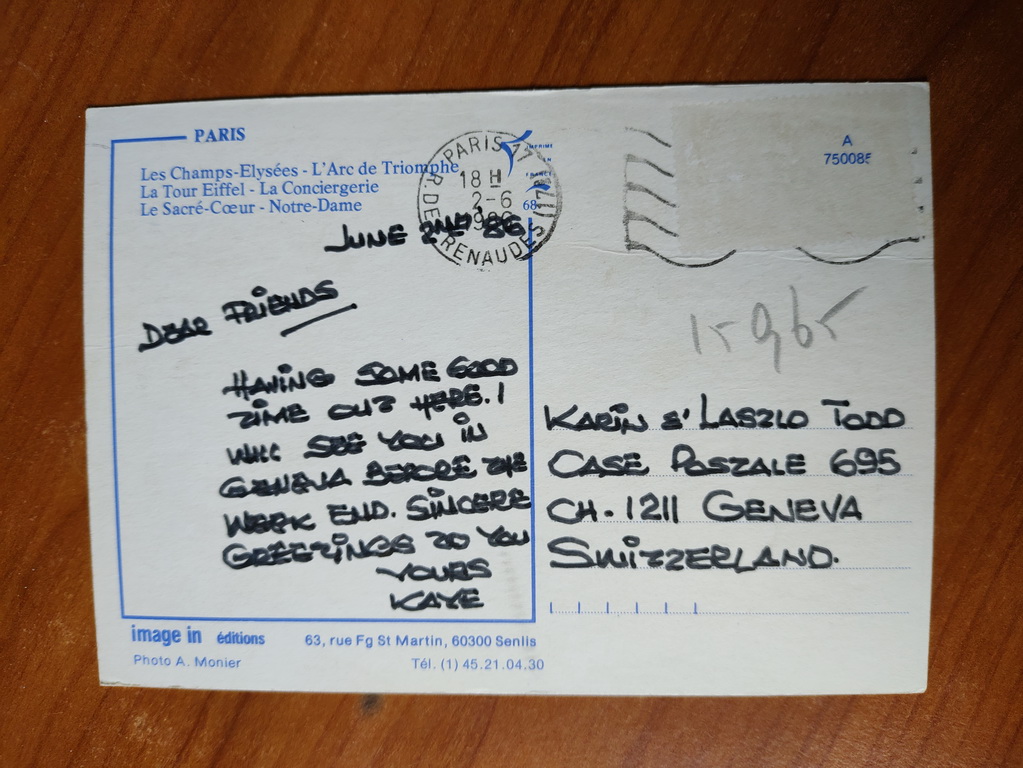 PARIS
Les Champs-Elysées - L'Arc de Triomphe
La Tour Eiffel - La Conciergerie
Le Sacré-Cœur - Notre-Dame
PARIS 17
18 H
2-6
R. DES RENAUDES (17E)
IMPRIME
EN
FRANCE
68
A
75008
JUNE 2ND, 86
DEAR FRIENDS
HAVING SOME GOOD
TIME OUT HERE. I
WILL SEE YOU IN
GENEVA BEFORE THE
WEEK END. SINCERE
GREETINGS TO YOU
YOURS
KAYE
15965
KARIN & LASZLO TODD
CASE POSTALE 695
CH. 1211 GENEVA
SWITZERLAND.
image in éditions
63, rue Fg St Martin, 60300 Senlis
Photo A. Monier
Tél. (1) 45.21.04.30